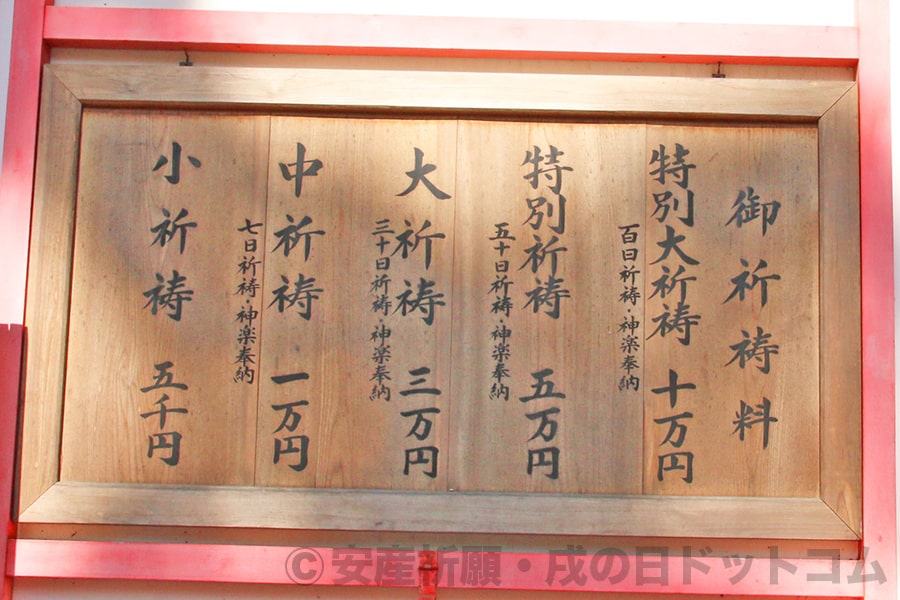 御祈祷料
特別大祈祷 十万円
百日祈祷・神楽奉納
特別祈祷 五万円
五十日祈祷・神楽奉納
大祈祷 三万円
三十日祈祷・神楽奉納
中祈祷 一万円
七日祈祷・神楽奉納
小祈祷 五千円
© 安産祈願・戌の日ドットコム